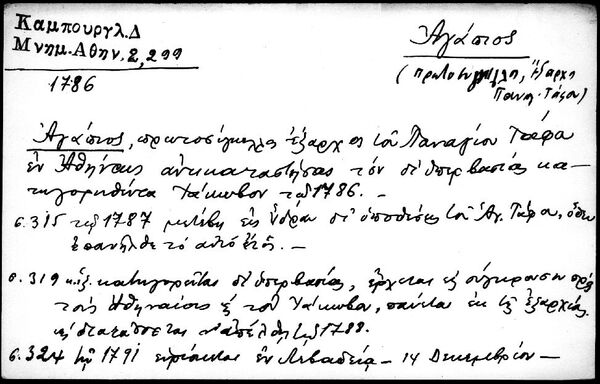 Καμπουργλ. Δ
Μνημ. Αθην. 2, 299
1786
Ἀγάπιος
(πρωτοσύγκελλος, Ἔξαρχ.
Παναγ. Τάφου)
Ἀγάπιος, πρωτοσύγκελλος ἔξαρχος τοῦ Παναγίου Τάφου
ἐν Ἀθήναις ἀντικαταστήσας τὸν δι' ὑπερβασίας κα-
τηγορηθέντα Ἰάκωβον τῷ 1786. —
σ. 315 τῷ 1787 μετέβη εἰς Ὕδραν δι' ὑποθέσεις τοῦ Ἁγ. Τάφου, ὅθεν
ἐπανῆλθε τὸ αὐτὸ ἔτος. —
σ. 319 κ.ἑξ. κατηγορεῖται δι' ὑπερβασίας, ἔρχεται εἰς σύγκρουσιν πρὸς
τοὺς Ἀθηναίους κ τὸν Ἰάκωβον, παύεται ἐκ τῆς ἐξαρχίας
κ διατάσσεται ν' ἀπέλθῃ τῷ 1788.
σ. 324 τῷ 1791 εὑρίσκεται ἐν Λεβαδείᾳ — 14 Δεκεμβρίου —